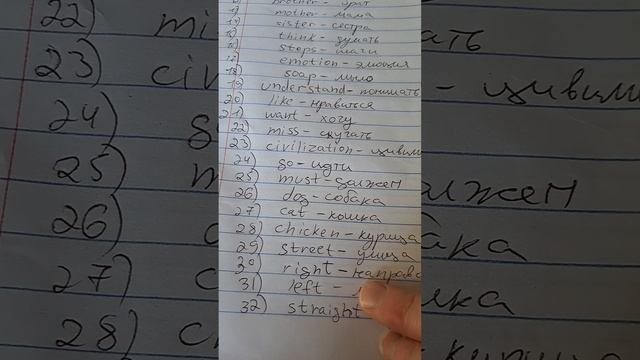 brother - брат
mother - мама
sister - сестра
think - думать
steps - шаги
emotion - эмоция
soap - мыло
19) understand - понимать
20) like - нравиться
21) want - хочу
22) miss - скучать
23) civilization - цивили
24) go - идти
25) must - должен
26) dog - собака
27) cat - кошка
28) chicken - курица
29) street - улица
30) right - направо
31) left -
32) straight